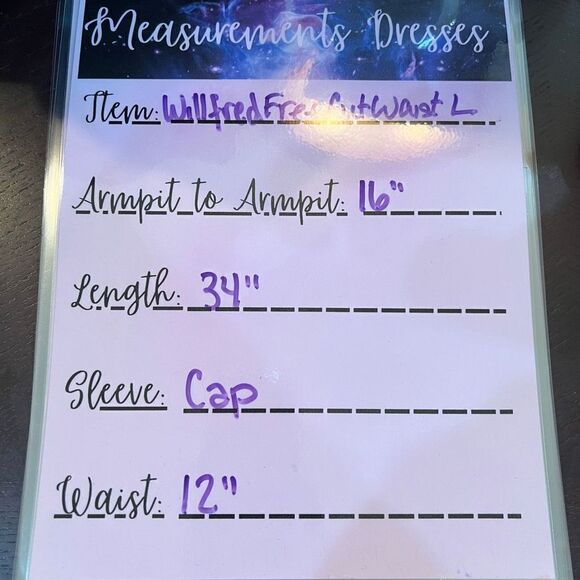 Measurements Dresses
Item: Willfred Free Cut Waist L
Armpit to Armpit: 16"
Length: 34"
Sleeve: Cap
Waist: 12"